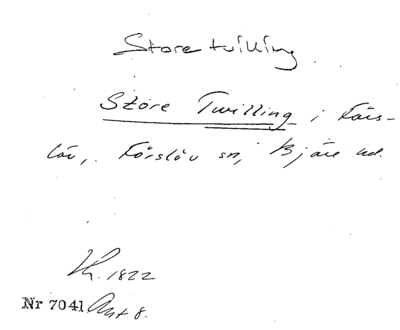 Store tvilling
Store Twilling i Förs-
löv, Förslöv sn, Bjäre hd.
Kh. 1822
Nr 7041 Akt 8.